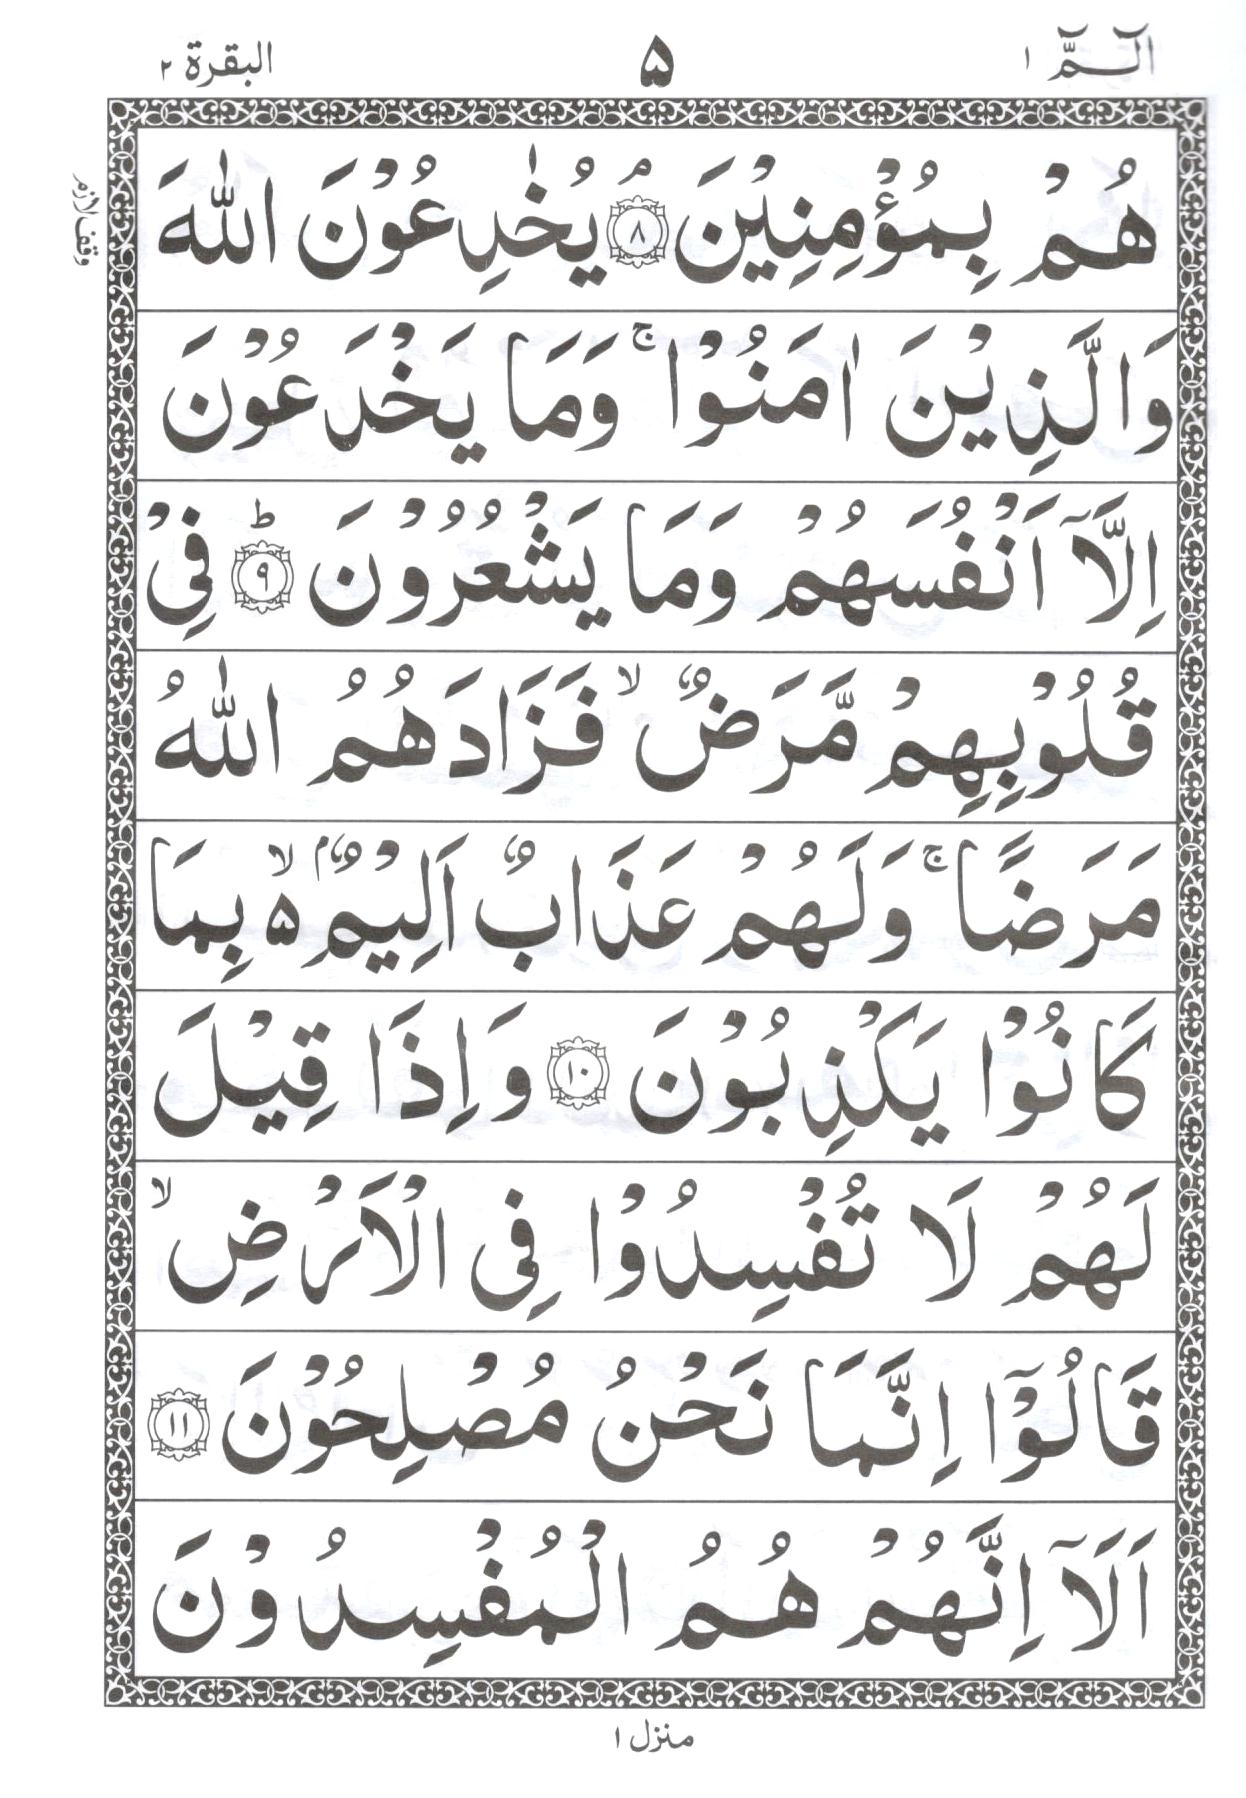 الٓـمّٓ ١
۵
البقرة ٢
هُمْ بِمُؤْمِنِيْنَ ۘ‏﴿٨﴾ يُخٰدِعُوْنَ اللّٰهَ
وقف لازم
وَالَّذِيْنَ اٰمَنُوْا ۚ وَمَا يَخْدَعُوْنَ
اِلَّاۤ اَنْفُسَهُمْ وَمَا يَشْعُرُوْنَ ؕ‏﴿٩﴾ فِىْ
قُلُوْبِهِمْ مَّرَضٌ ۙ فَزَادَهُمُ اللّٰهُ
مَرَضًا ۚ وَلَهُمْ عَذَابٌ اَلِيْمٌۢ ۵ۙ بِمَا
كَانُوْا يَكْذِبُوْنَ ﴿١٠﴾ وَاِذَا قِيْلَ
لَهُمْ لَا تُفْسِدُوْا فِى الْاَرْضِ ۙ
قَالُوْۤا اِنَّمَا نَحْنُ مُصْلِحُوْنَ ﴿١١﴾
اَلَاۤ اِنَّهُمْ هُمُ الْمُفْسِدُوْنَ
منزل ١